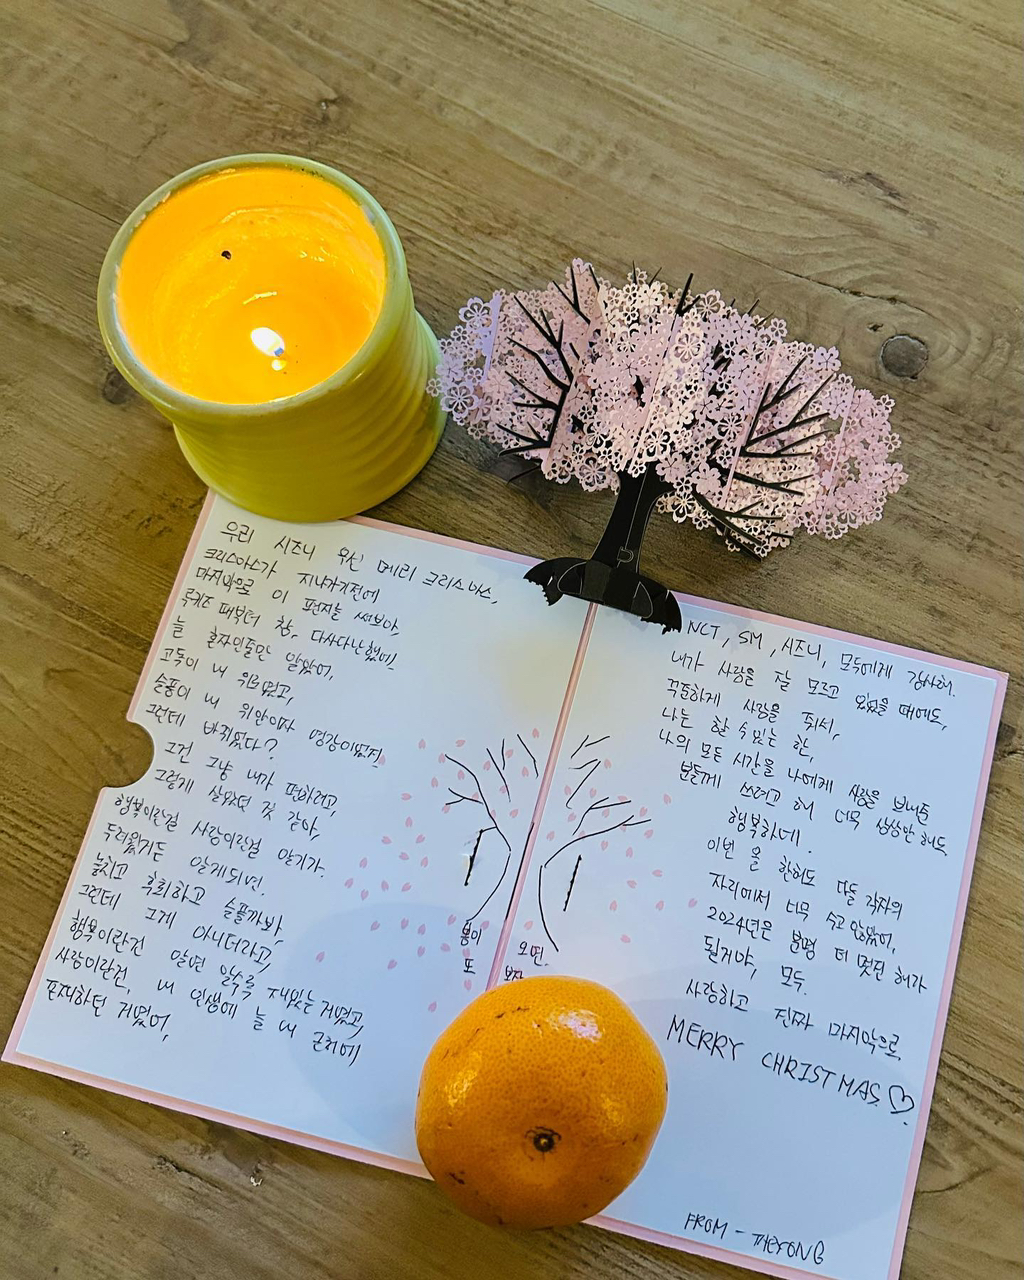 우리 시즈니 우선 메리 크리스마스,
크리스마스가 지나가기전에
마지막으로 이 편지를 써보아,
루키즈 때부터 참, 다사다난했어!
늘 혼자인줄만 알았어,
고독이 내 위로였고,
슬픔이 내 위안이자 영감이었지
그런데 바뀌었다?
그건 그냥 내가 편하려고,
그렇게 살았던 것 같아,
행복이란걸 사랑이란걸 알기가.
두려웠거든 알게되면.
놓치고 후회하고 슬플까봐,
그런데 그게 아니더라고,
행복이란건 알면 알수록 재밌는거였고,
사랑이란건, 내 인생에 늘 내 곁에
존재하던 거였어,
봄이 오면.
또 보자
NCT, SM, 시즈니, 모두에게 감사해.
내가 사랑을 잘 모르고 있었을 때에도,
꾸준하게 사랑을 줘서,
나는 할 수 있는 한,
나의 모든 시간을 나에게 사랑을 보내준
분들께 쓰려고 해 너무 상상만 해도
행복하네.
이번 한해도 다들 각자의
자리에서 너무 수고 많았어,
2024년은 분명 더 멋진 해가
될거야, 모두.
사랑하고 진짜 마지막으로
MERRY CHRISTMAS ♡
FROM - TAEYONG